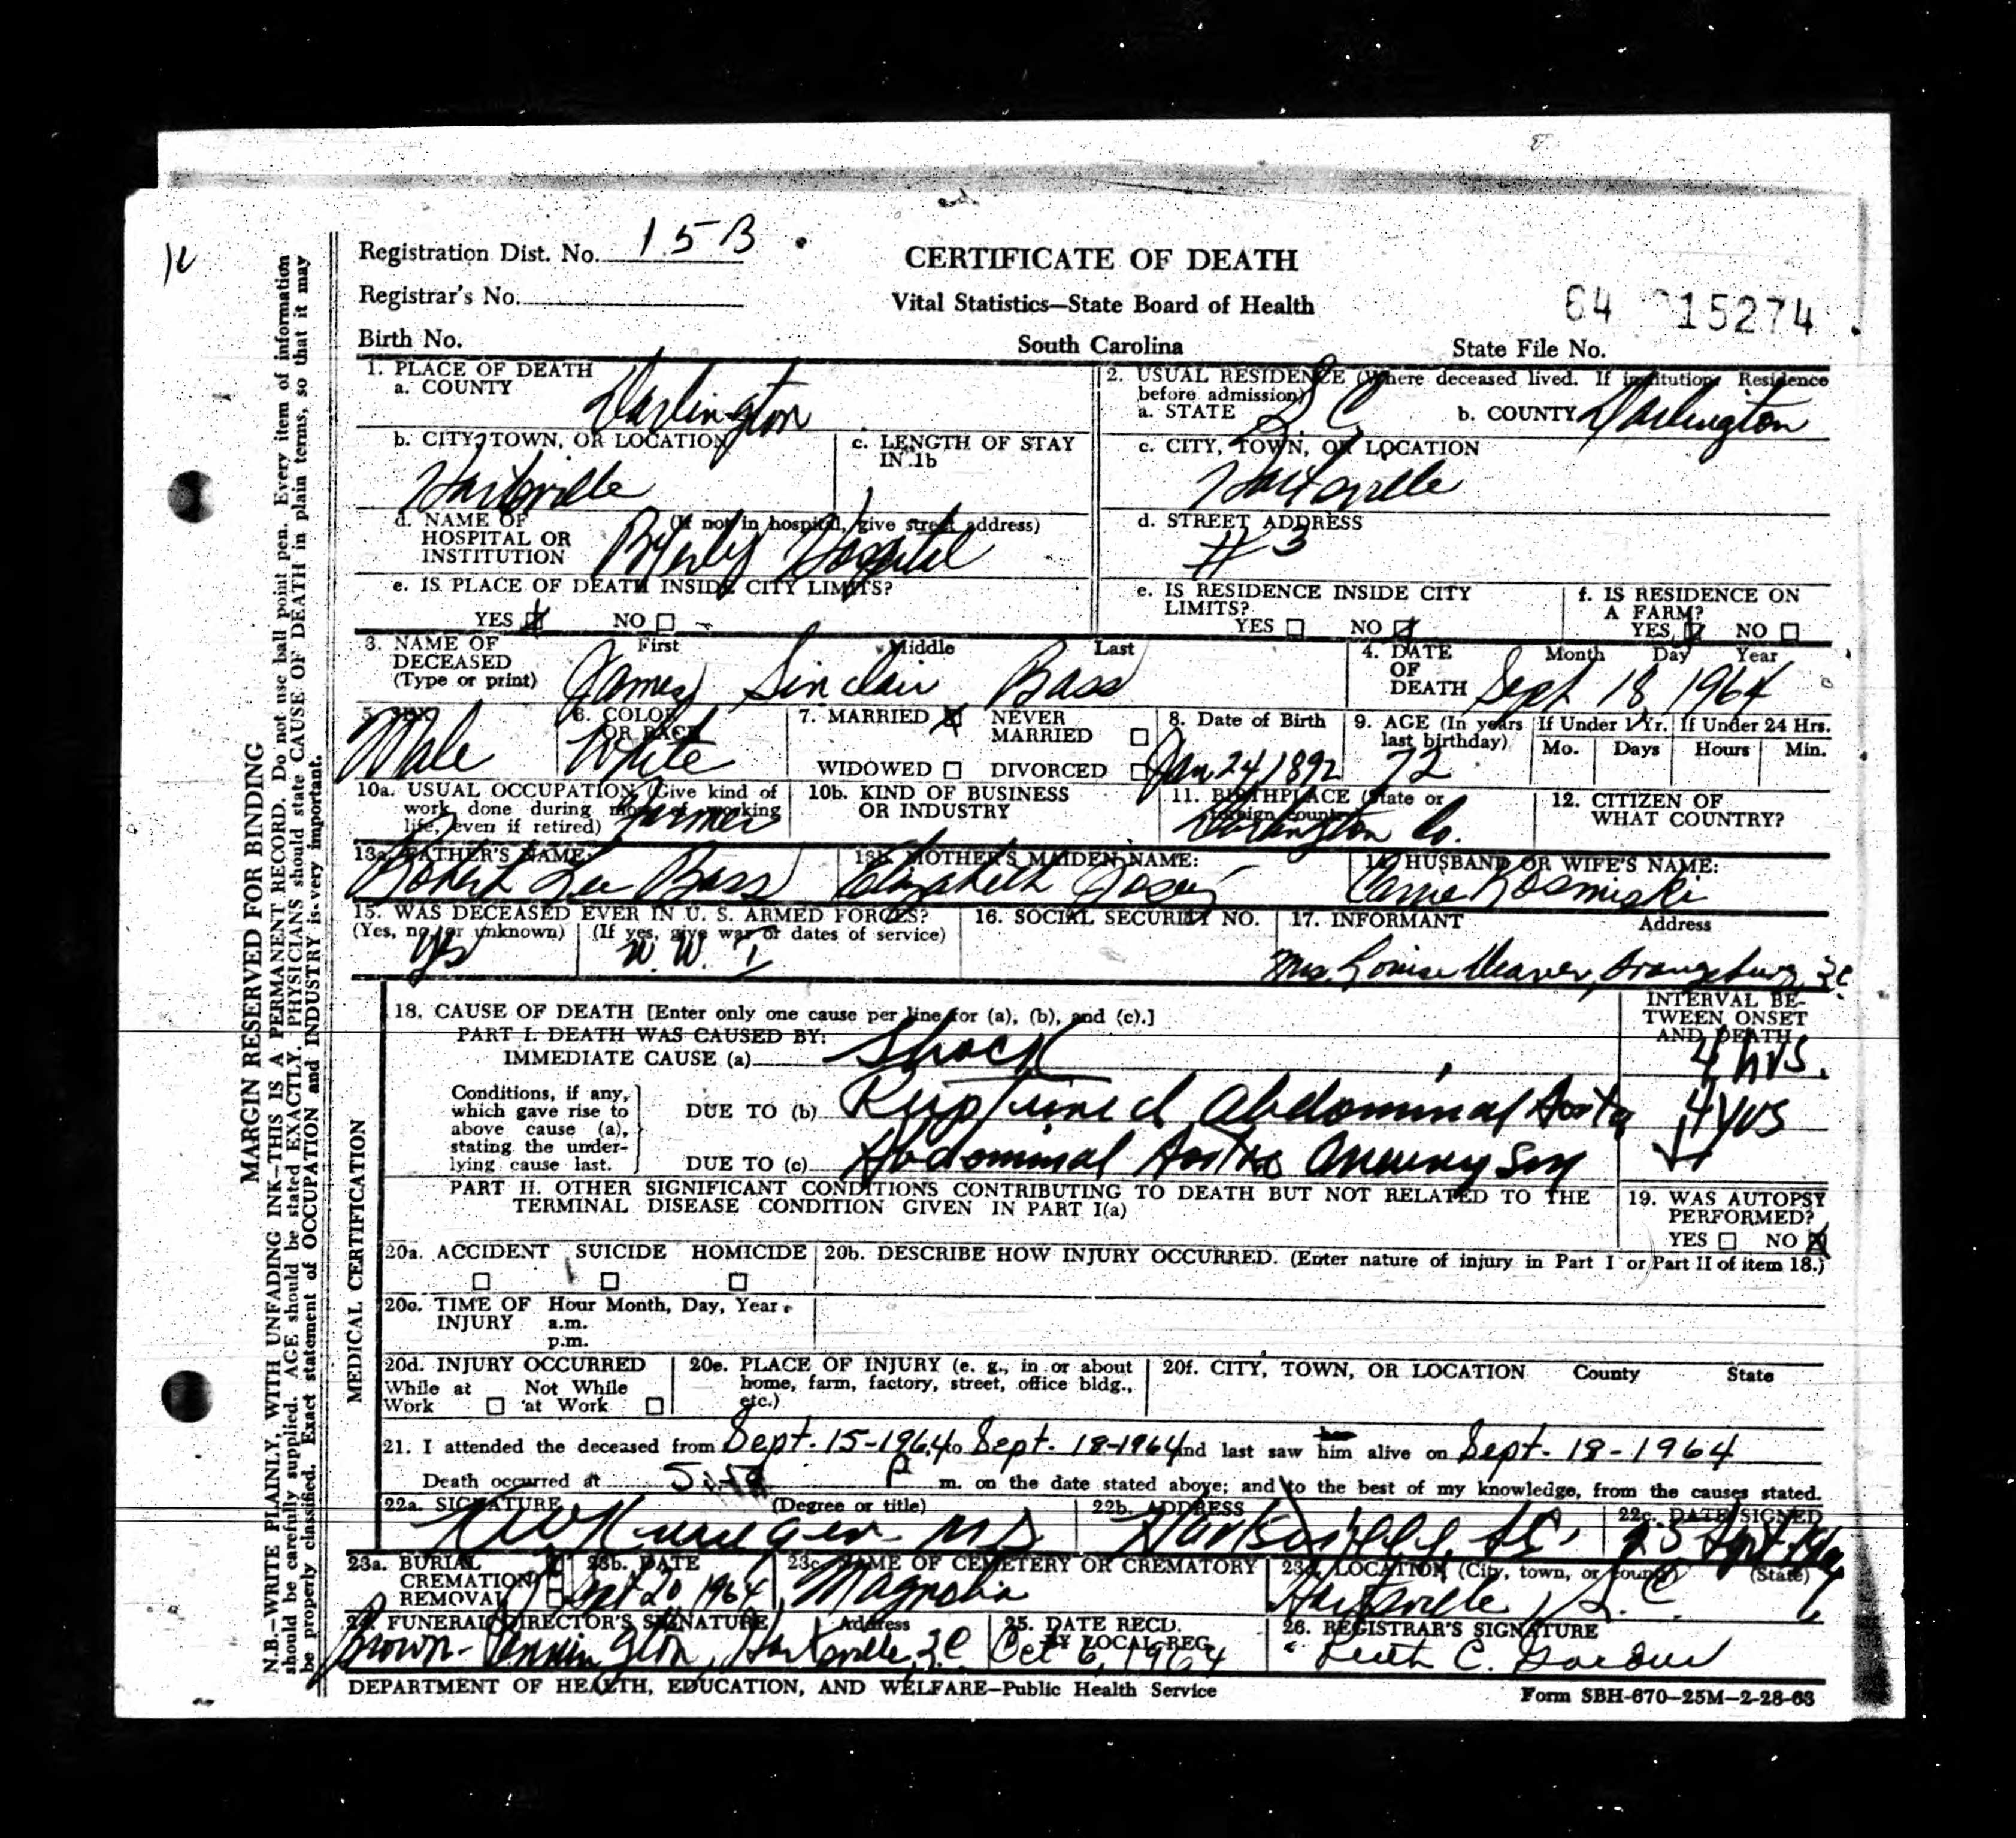 Registration Dist. No. 15B
CERTIFICATE OF DEATH
Registrar's No.
Vital Statistics—State Board of Health
64 15274
Birth No.
South Carolina
State File No.
MARGIN RESERVED FOR BINDING
N.B.—WRITE PLAINLY, WITH UNFADING INK—THIS IS A PERMANENT RECORD. Do not use ball point pen. Every item of information
should be carefully supplied. AGE should be stated EXACTLY. PHYSICIANS should state CAUSE OF DEATH in plain terms, so that it may
be properly classified. Exact statement of OCCUPATION and INDUSTRY is very important.
1. PLACE OF DEATH
a. COUNTY Darlington
2. USUAL RESIDENCE (Where deceased lived. If institution: Residence
before admission)
a. STATE S.C. b. COUNTY Darlington
b. CITY, TOWN, OR LOCATION
Hartsville
c. LENGTH OF STAY
IN 1b
c. CITY, TOWN, OR LOCATION
Hartsville
d. NAME OF (If not in hospital, give street address)
HOSPITAL OR
INSTITUTION Byerly Hospital
d. STREET ADDRESS
# 3
e. IS PLACE OF DEATH INSIDE CITY LIMITS?
YES NO
e. IS RESIDENCE INSIDE CITY
LIMITS?
YES NO
f. IS RESIDENCE ON
A FARM?
YES NO
3. NAME OF First Middle Last
DECEASED
(Type or print) James Sinclair Bass
4. DATE Month Day Year
OF
DEATH Sept 18, 1964
5. SEX
Male
6. COLOR
OR RACE
White
7. MARRIED NEVER
MARRIED
WIDOWED DIVORCED
8. Date of Birth
Jan 24, 1892
9. AGE (In years
last birthday)
72
If Under 1 Yr.
Mo. Days
If Under 24 Hrs.
Hours Min.
10a. USUAL OCCUPATION (Give kind of
work done during most of working
life, even if retired) Farmer
10b. KIND OF BUSINESS
OR INDUSTRY
11. BIRTHPLACE (State or
foreign country)
Darlington Co.
12. CITIZEN OF
WHAT COUNTRY?
13a. FATHER'S NAME:
Robert Lee Bass
13b. MOTHER'S MAIDEN NAME:
Elizabeth Josey
14. HUSBAND OR WIFE'S NAME:
Carrie Kosmiski
15. WAS DECEASED EVER IN U. S. ARMED FORCES?
(Yes, no, or unknown) (If yes, give war or dates of service)
yes W. W. I
16. SOCIAL SECURITY NO.
17. INFORMANT Address
Mrs. Louise Weaver, Orangeburg, S.C.
MEDICAL CERTIFICATION
18. CAUSE OF DEATH [Enter only one cause per line for (a), (b), and (c).]
INTERVAL BE-
TWEEN ONSET
AND DEATH
PART I. DEATH WAS CAUSED BY:
IMMEDIATE CAUSE (a) Shock 4 hrs.
Conditions, if any,
which gave rise to
above cause (a),
stating the under-
lying cause last.
DUE TO (b) Ruptured abdominal Aorta 4 yrs
DUE TO (c) Abdominal Aortic Aneurysm
PART II. OTHER SIGNIFICANT CONDITIONS CONTRIBUTING TO DEATH BUT NOT RELATED TO THE
TERMINAL DISEASE CONDITION GIVEN IN PART I(a)
19. WAS AUTOPSY
PERFORMED?
YES NO
20a. ACCIDENT SUICIDE HOMICIDE
20b. DESCRIBE HOW INJURY OCCURRED. (Enter nature of injury in Part I or Part II of item 18.)
20c. TIME OF Hour Month, Day, Year
INJURY a.m.
p.m.
20d. INJURY OCCURRED
While at Not While
Work at Work
20e. PLACE OF INJURY (e. g., in or about
home, farm, factory, street, office bldg.,
etc.)
20f. CITY, TOWN, OR LOCATION County State
21. I attended the deceased from Sept. 15-1964 to Sept. 18-1964 and last saw him alive on Sept. 18-1964
Death occurred at P m. on the date stated above; and to the best of my knowledge, from the causes stated.
22a. SIGNATURE (Degree or title)
Krueger MD
22b. ADDRESS
Hartsville, S.C.
22c. DATE SIGNED
23a. BURIAL
CREMATION
REMOVAL
23b. DATE
Sept 20 1964
23c. NAME OF CEMETERY OR CREMATORY
Magnolia
23d. LOCATION (City, town, or county) (State)
Hartsville, S.C.
24. FUNERAL DIRECTOR'S SIGNATURE Address
Brown-Pennington, Hartsville, S.C.
25. DATE RECD.
BY LOCAL REG.
Oct 6, 1964
26. REGISTRAR'S SIGNATURE
DEPARTMENT OF HEALTH, EDUCATION, AND WELFARE—Public Health Service
Form SBH-670-25M-2-28-63